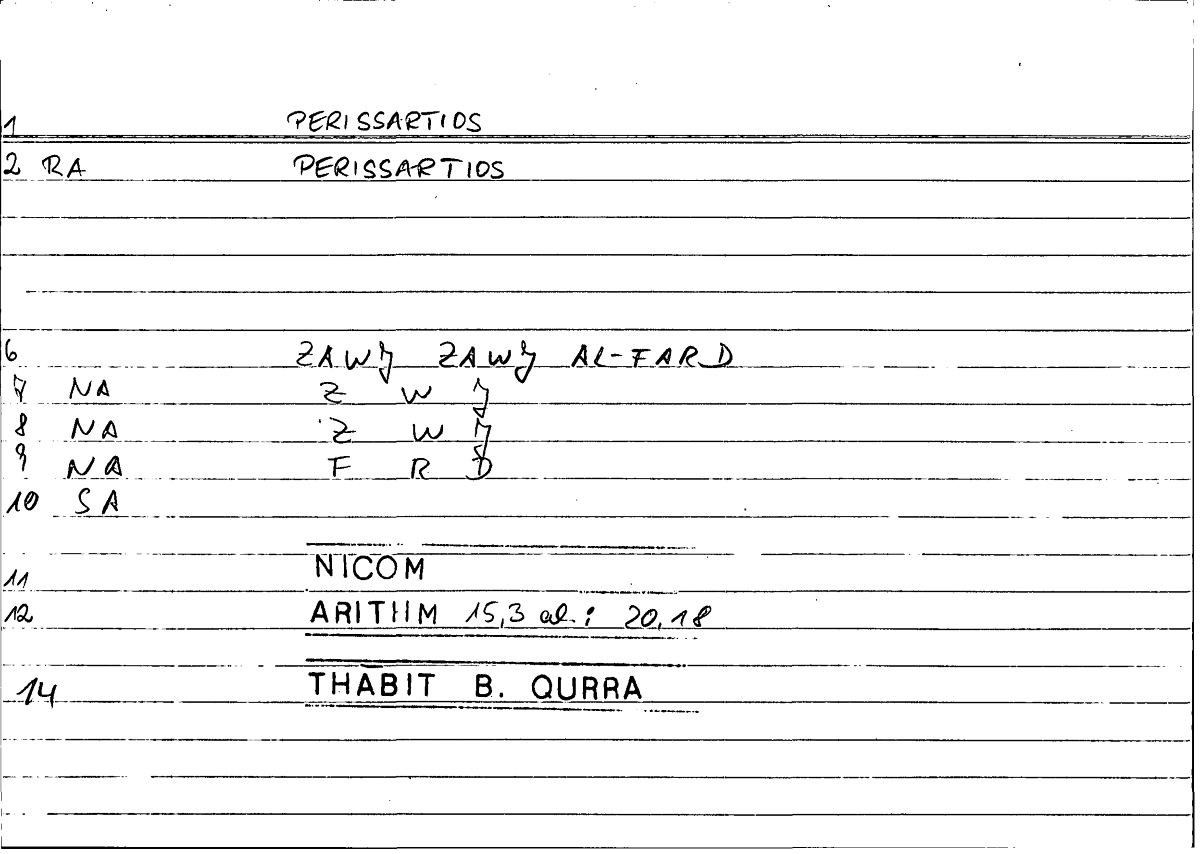 1 PERISSARTIOS
2 RA PERISSARTIOS
6 ZAWJ ZAWJ AL-FARD
7 NA Z W J
8 NA Z W J
9 NA F R D
10 SA
11 NICOM
12 ARITHM 15,3 al.; 20,18
14 THĀBIT B. QURRA